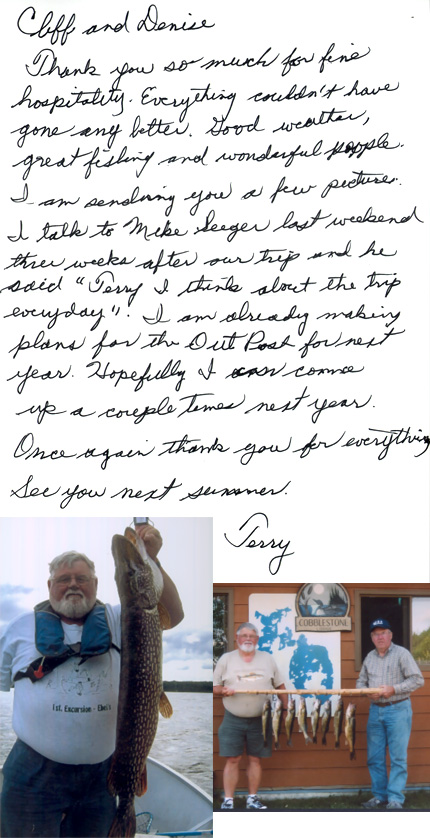 Cliff and Denise
Thank you so much for fine
hospitality. Everything couldn't have
gone any better. Good weather,
great fishing and wonderful people.
I am sending you a few pictures.
I talk to Mike Seeger last weekend
three weeks after our trip and he
said "Terry I think about the trip
everyday". I am already making
plans for the Out Post for next
year. Hopefully I can come
up a couple times next year.
Once again thank you for everything
See you next summer.
Terry
1st. Excursion -
COBBLESTONE